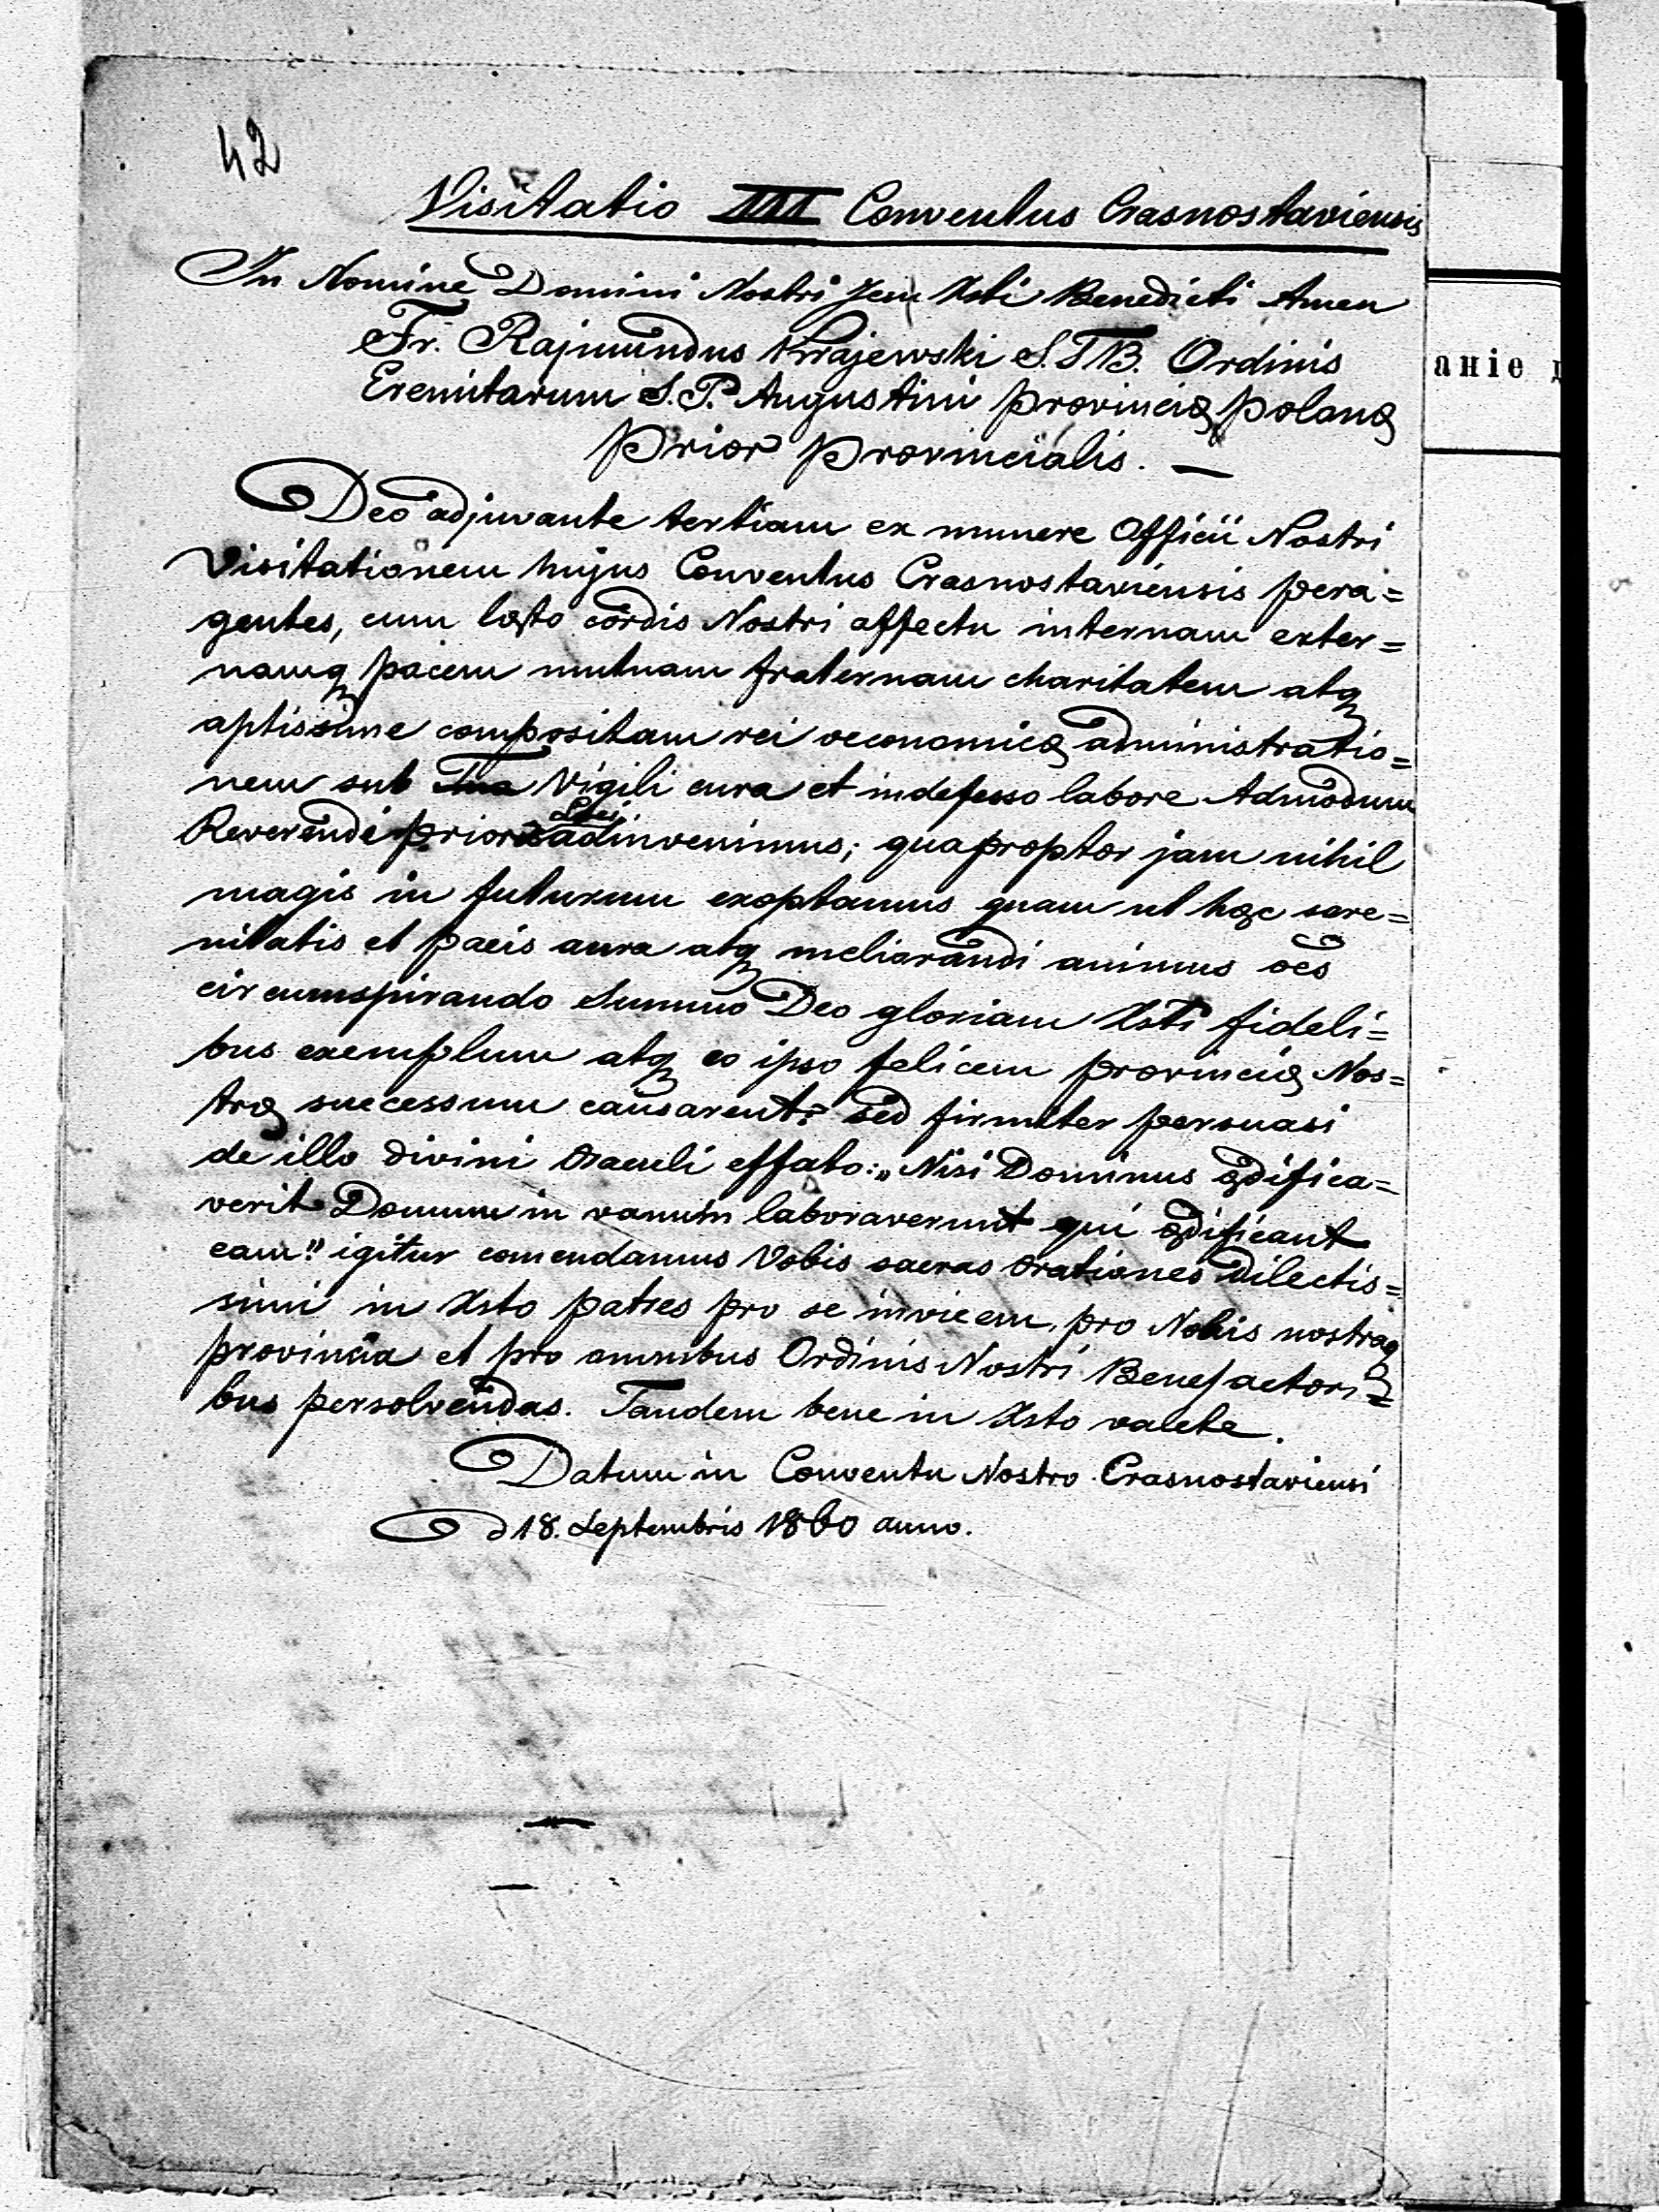 42
Visitatio III Conventus Crasnostaviensis
In Nomine Domini Nostri Jesu Xsti Benedicti Amen
Fr. Rajmundus Krajewski S.T.B. Ordinis
Eremitarum S.P. Augustini provinciæ polonæ
prior provincialis. —
Deo adjuvante tertiam ex munere Officii Nostri
Visitationem hujus Conventus Crasnostaviensis pera=
gentes, cum læto cordis Nostri affectu internam exter=
namq pacem mutuam fraternam charitatem atq
aptissime compositam rei oeconomicæ administratio=
nem sub Tua Vigili cura et indefesso labore Admodum
Reverendi prioris adinvenimus; quapropter jam nihil
magis in futurum exoptamus quam ut hæc sere=
nitatis et pacis aura atq meliorandi animus oēs
circumspirando Summo Deo gloriam Xsti fideli=
bus exemplum atq eo ipso felicem provinciæ Nos=
træ successum causarent: sed firmiter persuasi
de illo divini Oraculi effato: „Nisi Dominus ædifica=
verit Domum in vanum laboraverunt qui ædificant
eam" igitur comendamus Vobis sacras Orationes Dilectis=
simi in Xsto patres pro se invicem, pro Nobis nostraq
provincia et pro omnibus Ordinis Nostri Benefactori=
bus persolvendas. Tandem bene in Xsto valete.
Datum in Conventu Nostro Crasnostaviensi
d 18. Septembris 1860 anno.
аніе